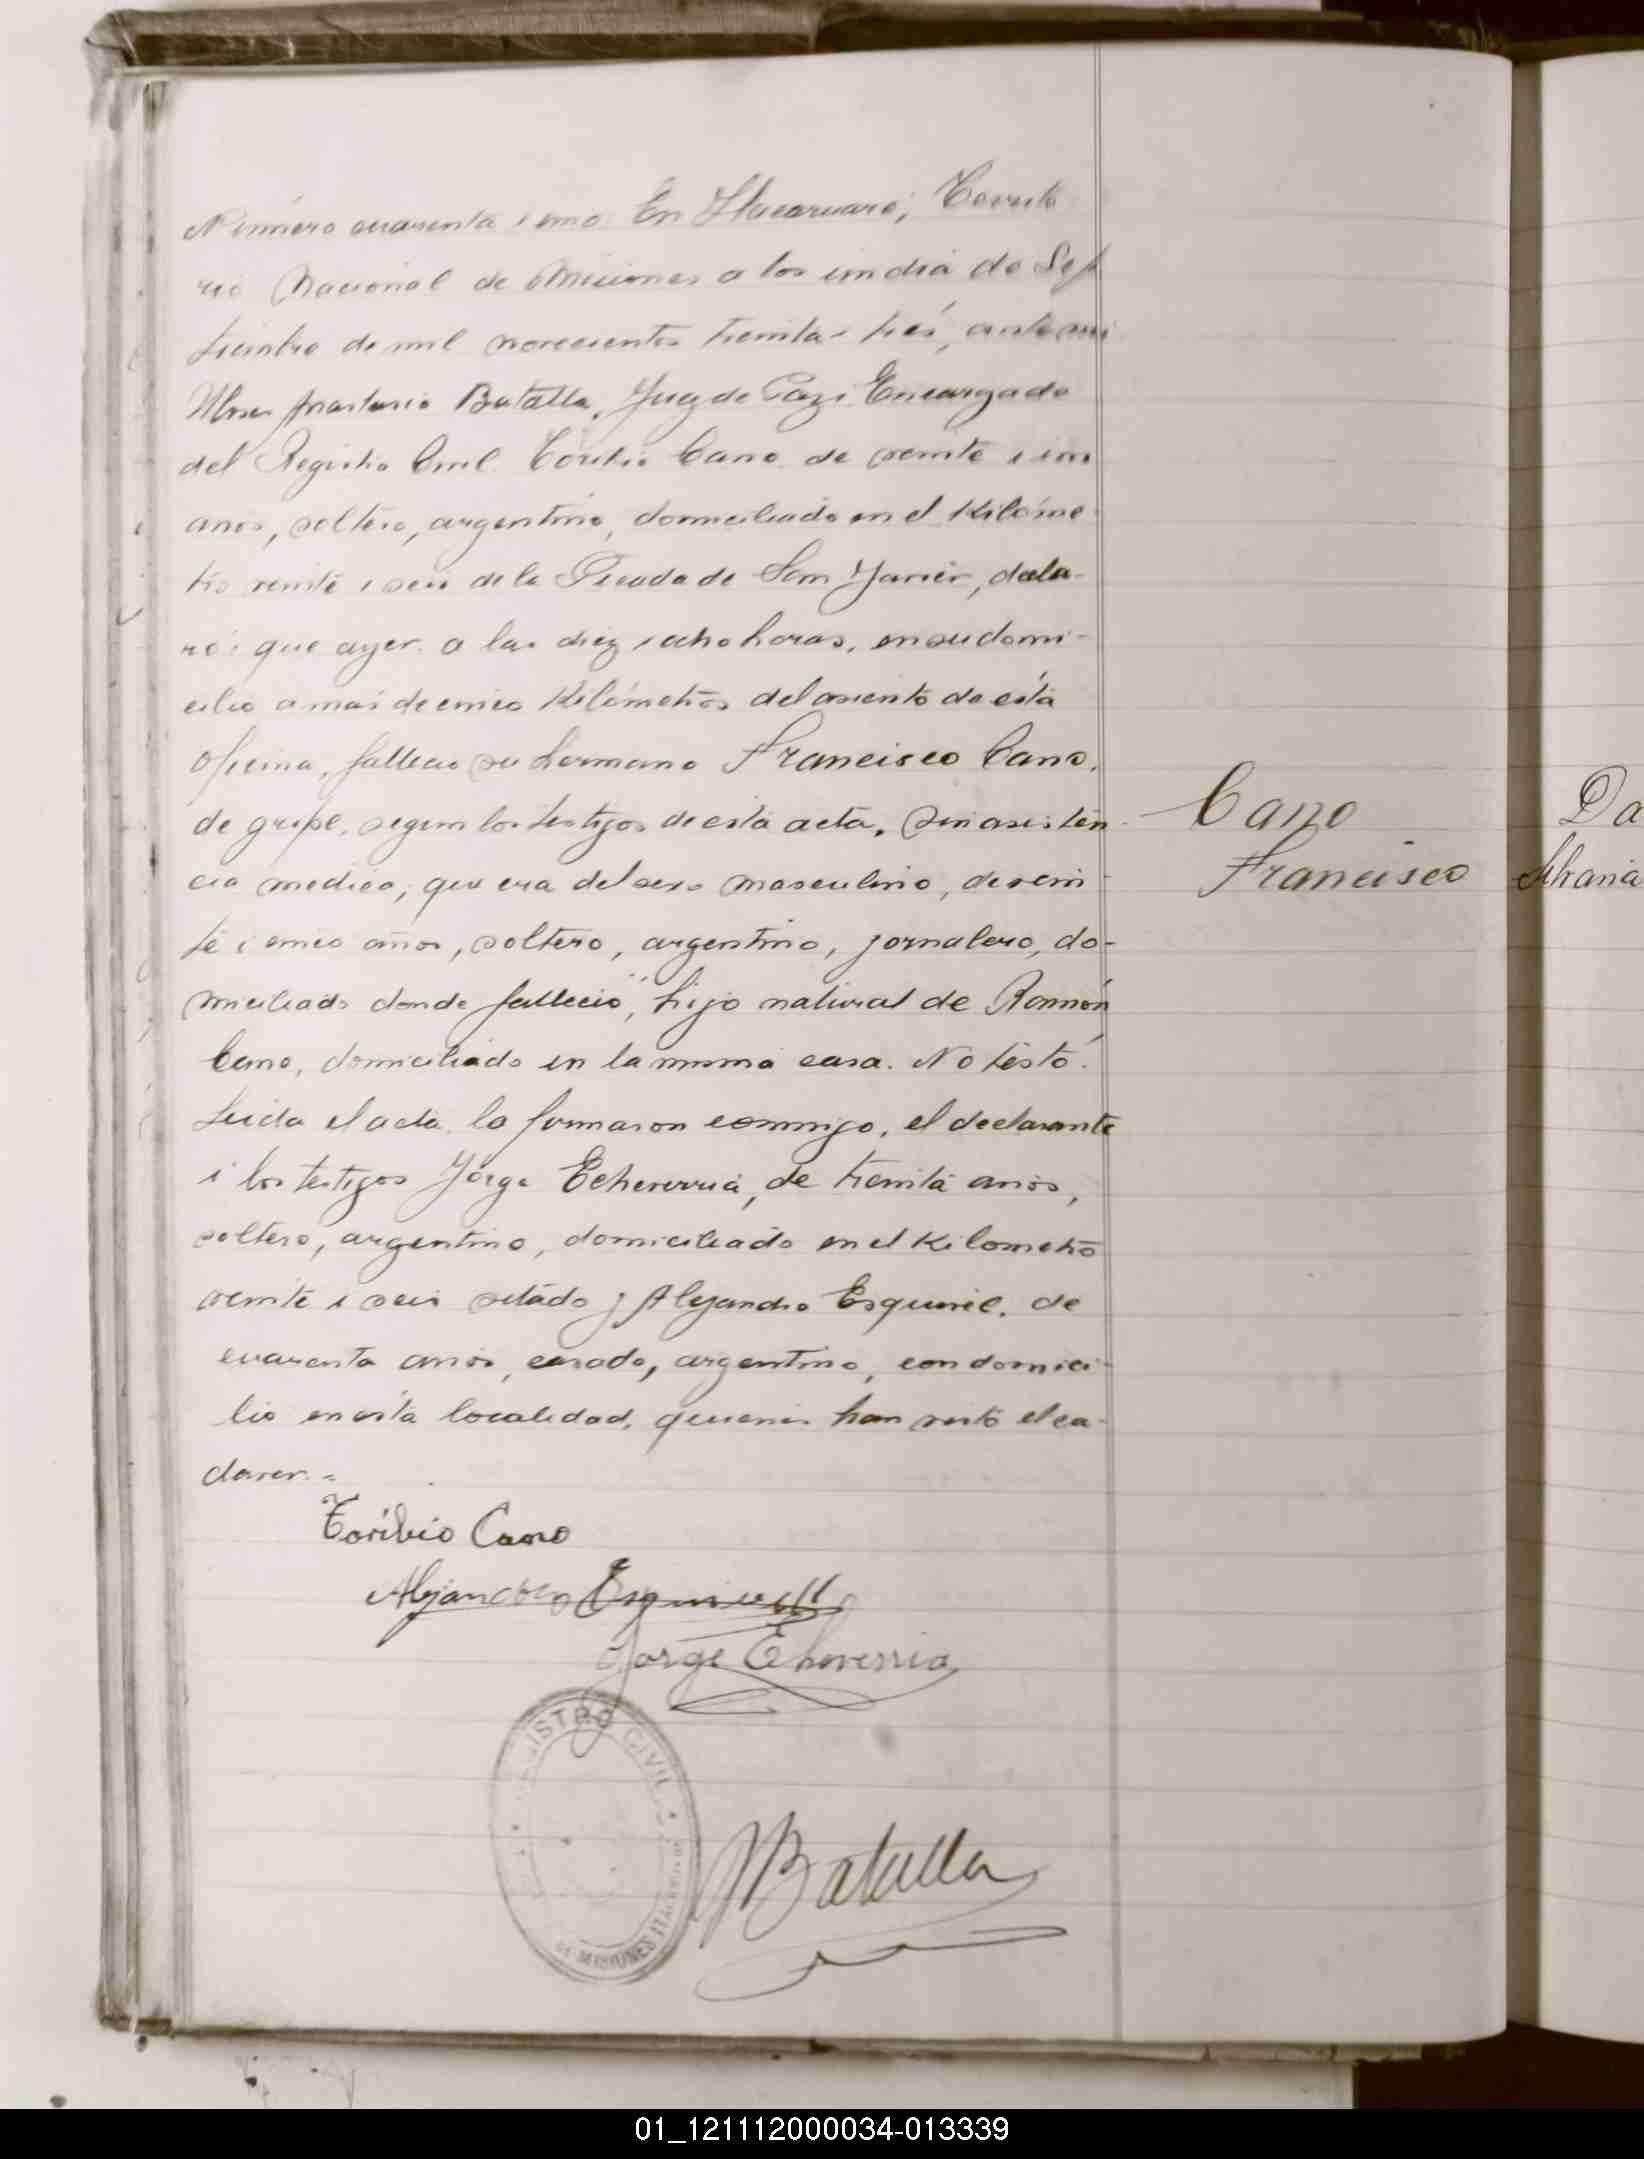 Número cuarenta i uno. En Itacaruaré, Territo
rio Nacional de Misiones a los un dia de Sep
tiembre de mil novecientos treinta i tres, ante mi
Anastasio Batalla, Juez de Paz i Encargado
del Registro Civil. Toribio Cano de veinte i un
anos, soltero, argentino, domiciliado en el Kilóme
tro veinte i seis de la Picada de San Javier, decla-
ró: que ayer a las diez i ocho horas, en su domi-
cilio a más de cinco Kilómetros del asiento de esta
oficina, falleció su hermano Francisco Cano,
de gripe, segun los testigos de esta acta, sin asisten
cia medica, que era del sexo masculino, de vein
te i cinco años, soltero, argentino, jornalero, do-
miciliado donde falleció, hijo natural de Ramón
Cano, domiciliado en la misma casa. No testó.
Leida el acta la firmaron conmigo, el declarante
i los testigos Jorge Echeverria, de treinta anos,
soltero, argentino, domiciliado en el Kilometro
veinte i seis sitado y Alejandro Esquivel, de
cuarenta anos, casado, argentino, con domici-
lio en esta localidad, quienes han visto el ca-
daver.=
Cano
Francisco
Da
Toribio Cano
Alejandro Esquivell
Jorge Echeverria
REGISTRO CIVIL
DE MISIONES
Batalla
01_121112000034-013339